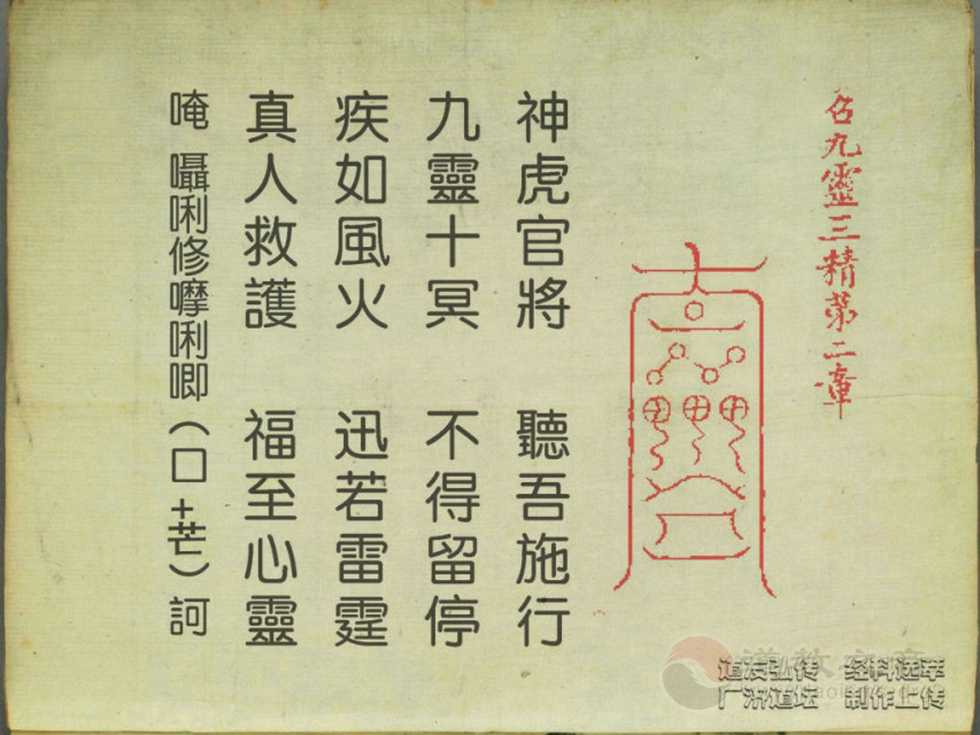 召九靈三精第二章
神虎官將　聽吾施行
九靈十冥　不得留停
疾如風火　迅若雷霆
真人救護　福至心靈
唵 囁唎修嚤唎唧（口+芒）訶
道友弘传　经科选萃
广济道坛　制作上传